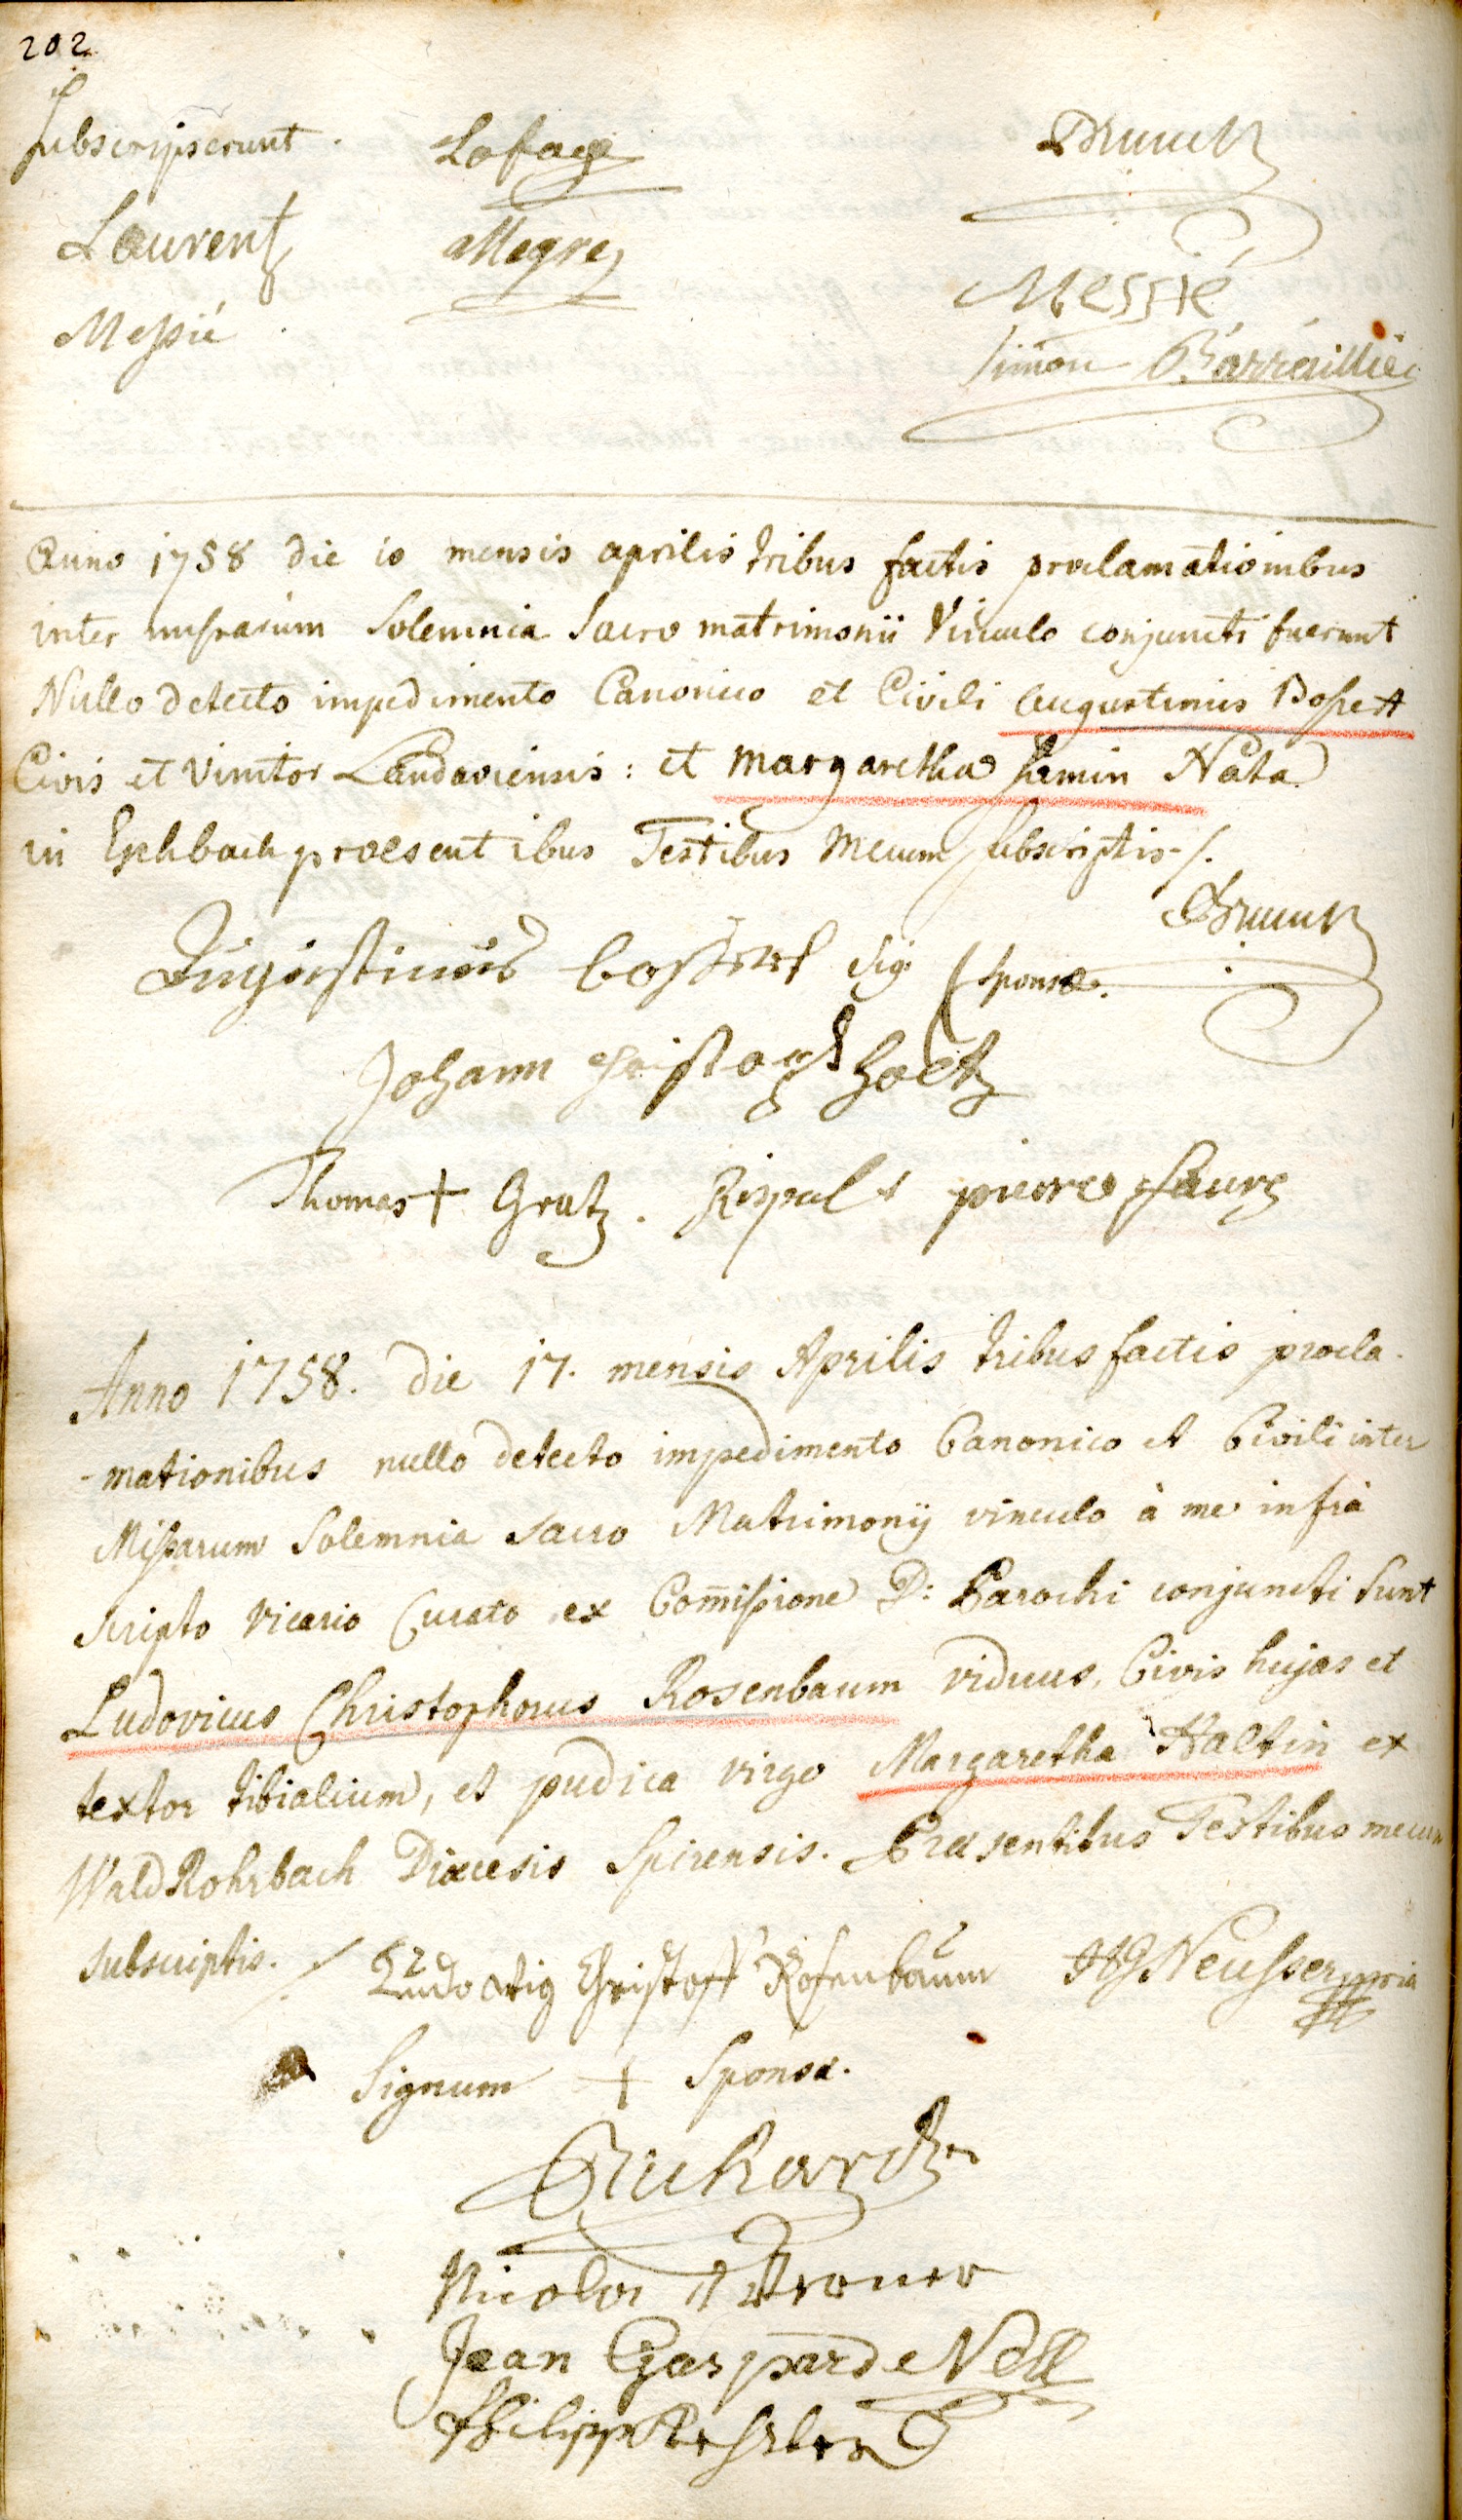 202
Subscripserunt. Lafage
Laurent Allegre Messié
Messié Simon Barraillier
Anno 1758 die 10 mensis aprilis tribus factis proclamationibus
inter missarum Solemnia Sacro matrimonii Vinculo conjuncti fuerunt
Nullo detecto impedimento Canonico et Civili Augustinus Bossert
Civis et Vinitor Landaviensis: et Margaretha Hamin Nata
in Eschbach praesentibus Testibus Mecum subscriptis ./.
Augustinus bossert sig ( sponsae.
Johann christoph
Thomas + Gratz. Rispal pierre faure
Anno 1758. die 17. mensis Aprilis tribus factis procla-
-mationibus nullo detecto impedimento Canonico et Civili inter
Missarum Solemnia sacro Matrimonij vinculo à me infrà
scripto Vicario Curato ex Com̄issione D: Parochi conjuncti sunt
Ludovicus Christophorus Rosenbaum viduus, Civis hujas et
textor tibialium, et pudica virgo Margaretha Haltin ex
WaldRohrbach Dioecesis Spirensis. Praesentibus Testibus mecum
subscriptis. / Ludowig Christoff Rosenbaum HGNeusser mpria
Signum + Sponsae.
Nicola
Jean Gaspard Nell
Philipp Kesszler